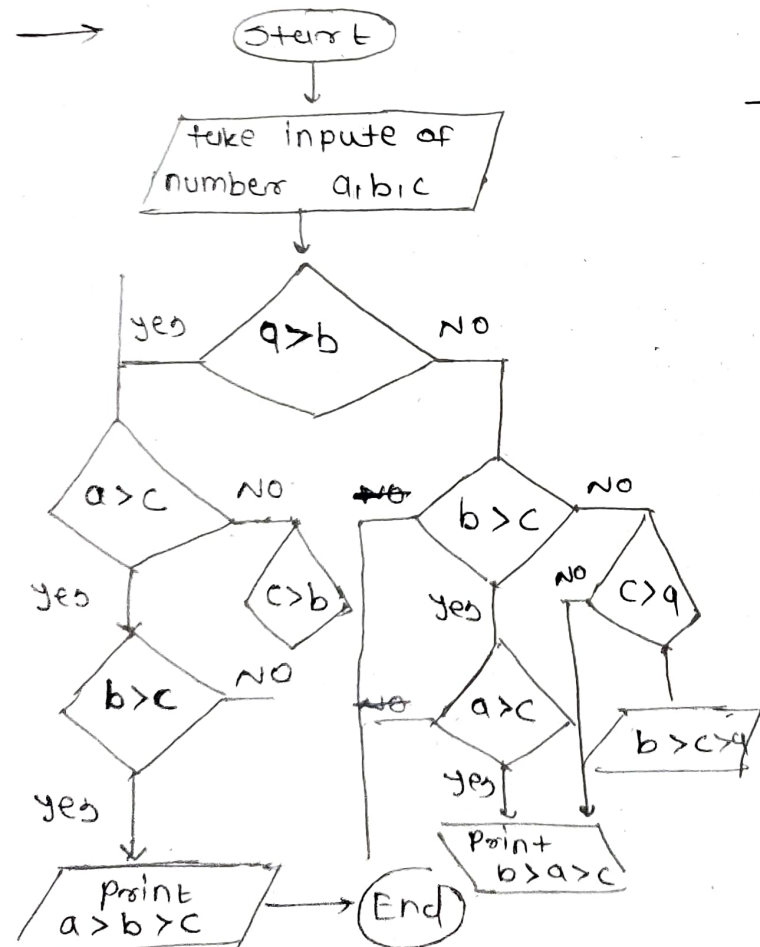 Start
take inpute of
number a,b,c
yes
a>b
NO
a>c
NO
NO
b>c
NO
yes
c>b
yes
NO
c>a
b>c
NO
NO
a>c
b>c>a
yes
yes
print
a>b>c
End
print
b>a>c